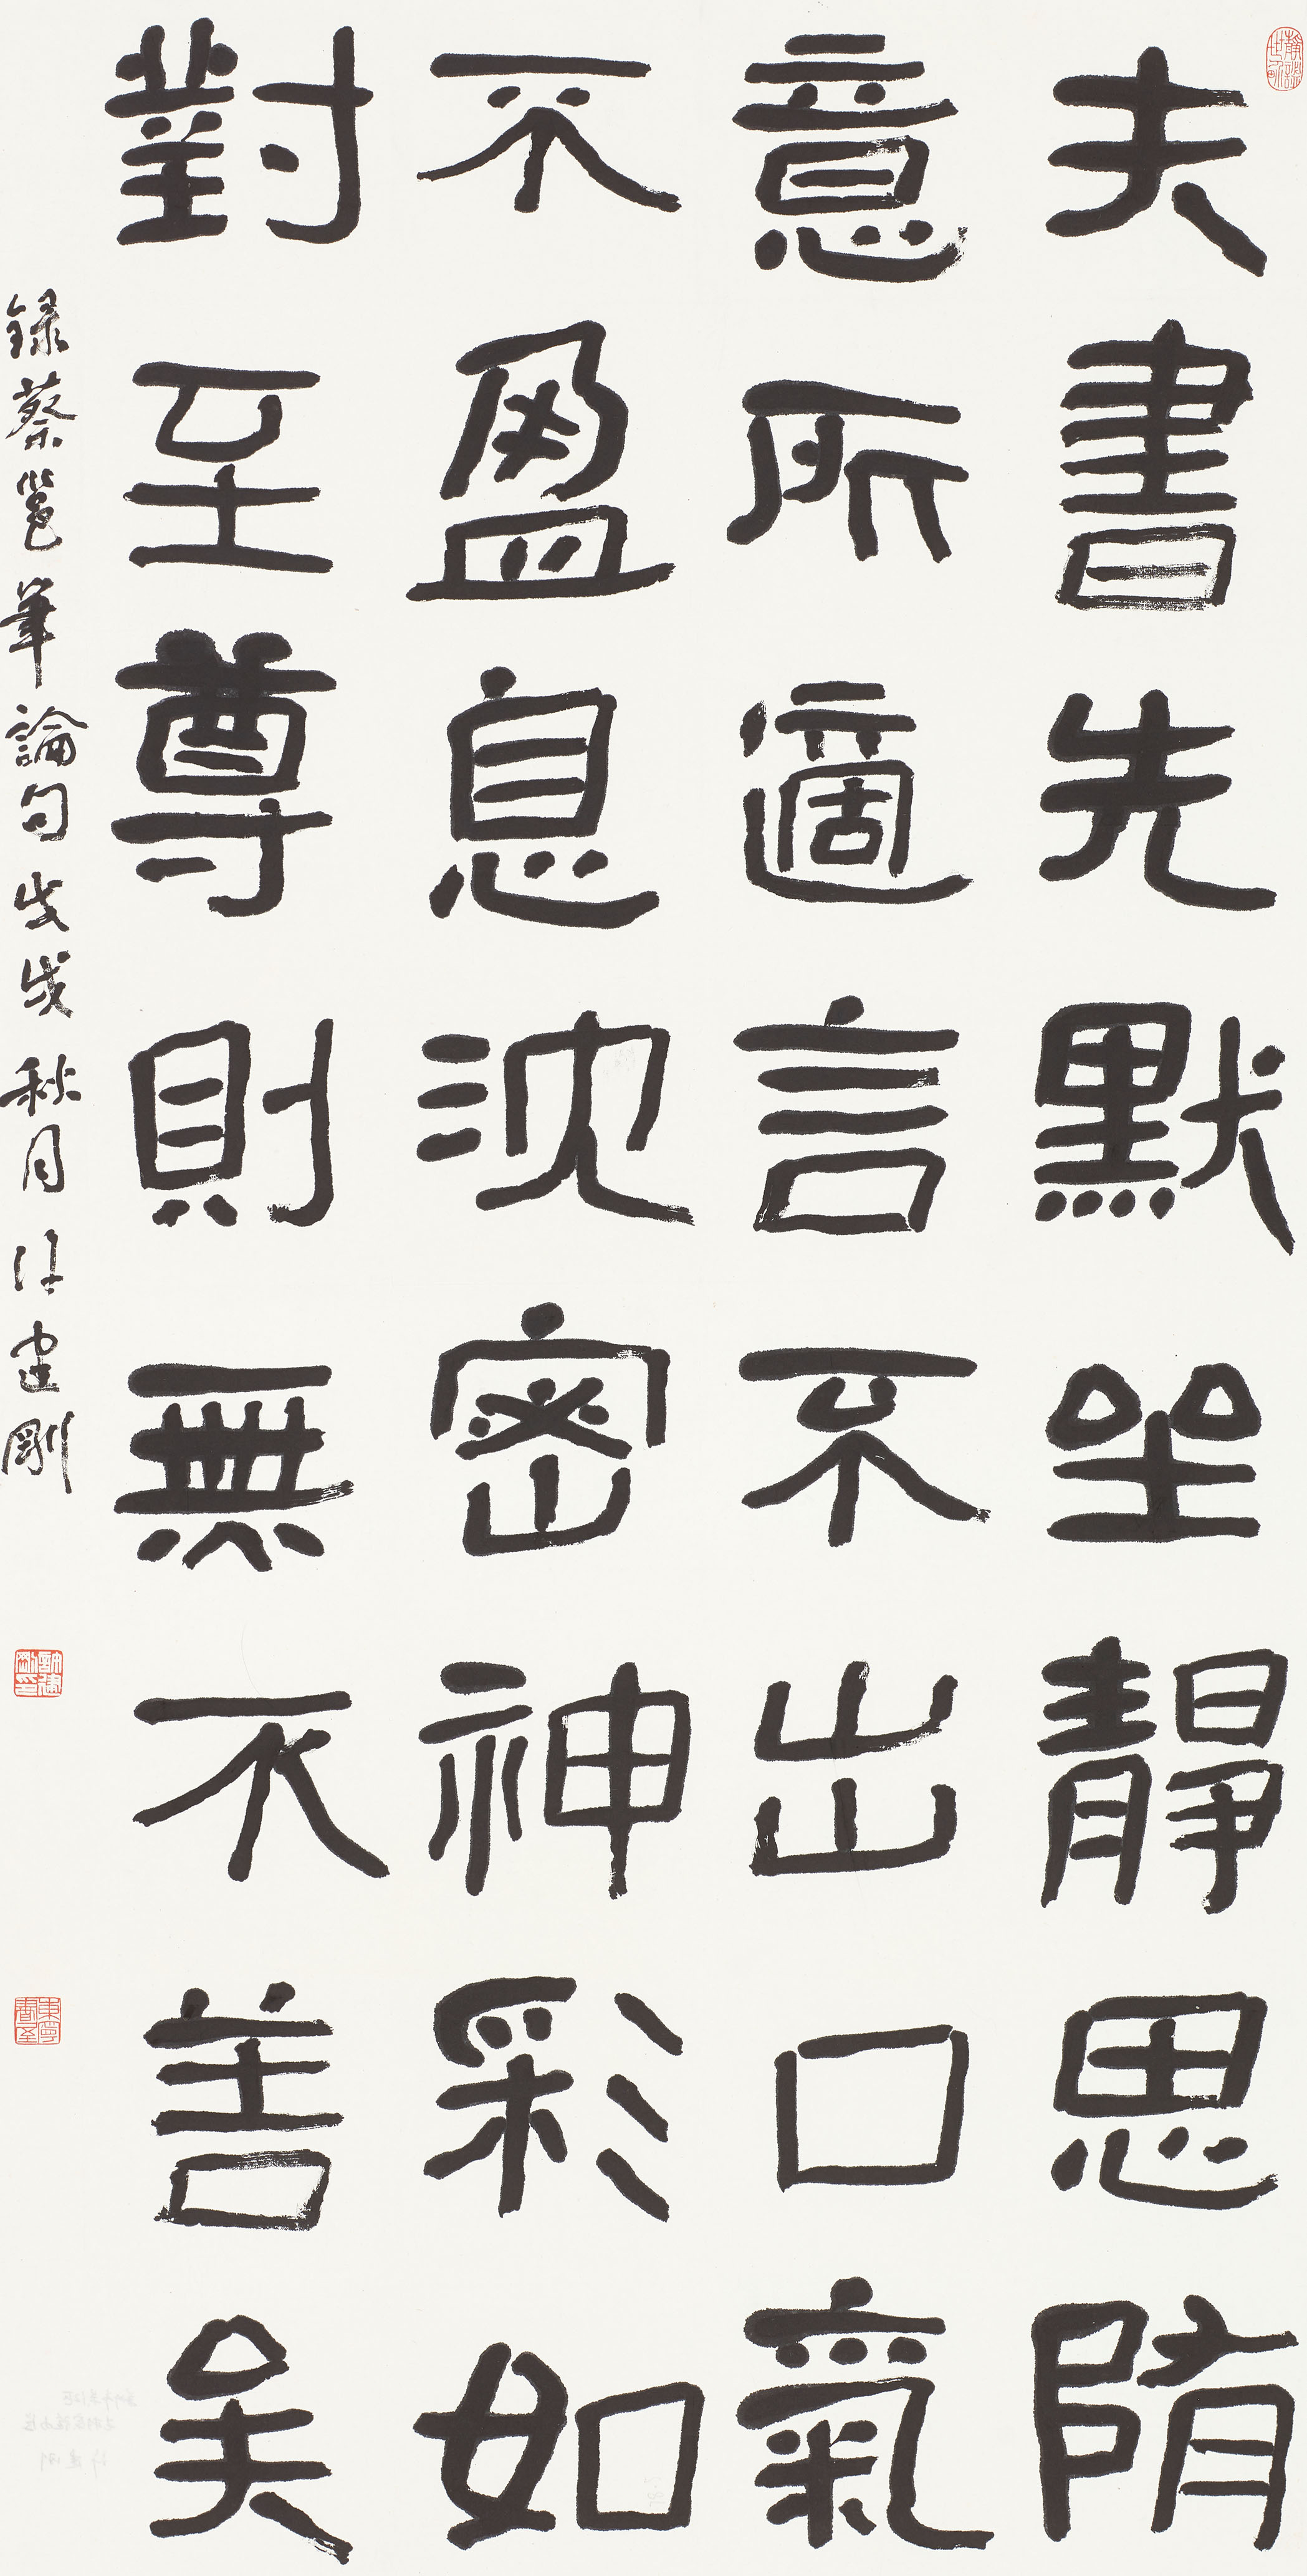 夫書先默坐靜思陏
意所適言不出口氣
不盈息沈密神彩如
對至尊則無不善矣
録蔡邕筆論句戊戌秋月許建剛
許建剛印